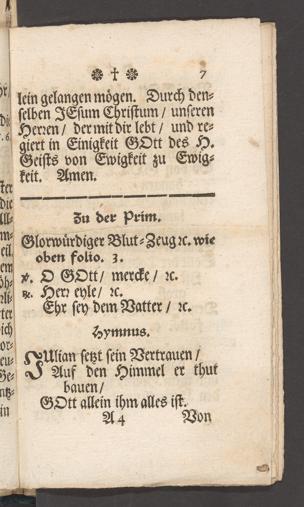 ❉ ✝ ❉ 7
lein gelangen mögen. Durch den-
selben JEsum Christum / unseren
Herren / der mit dir lebt / und re-
giert in Einigkeit GOtt des H.
Geists von Ewigkeit zu Ewig-
keit. Amen.
Zu der Prim.
Glorwürdiger Blut-Zeug ꝛc. wie
oben folio. 3.
℣. O GOtt / mercke / ꝛc.
℟. Herr eyle / ꝛc.
Ehr sey dem Vatter / ꝛc.
Hymnus.
JUlian setzt sein Vertrauen /
Auf den Himmel er thut
bauen /
GOtt allein ihm alles ist.
A 4 Von